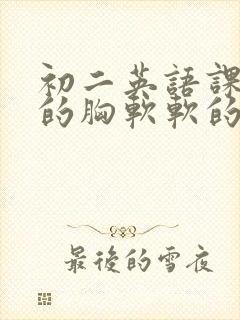 初二英語課
的胸軟軟的
最後的雪夜